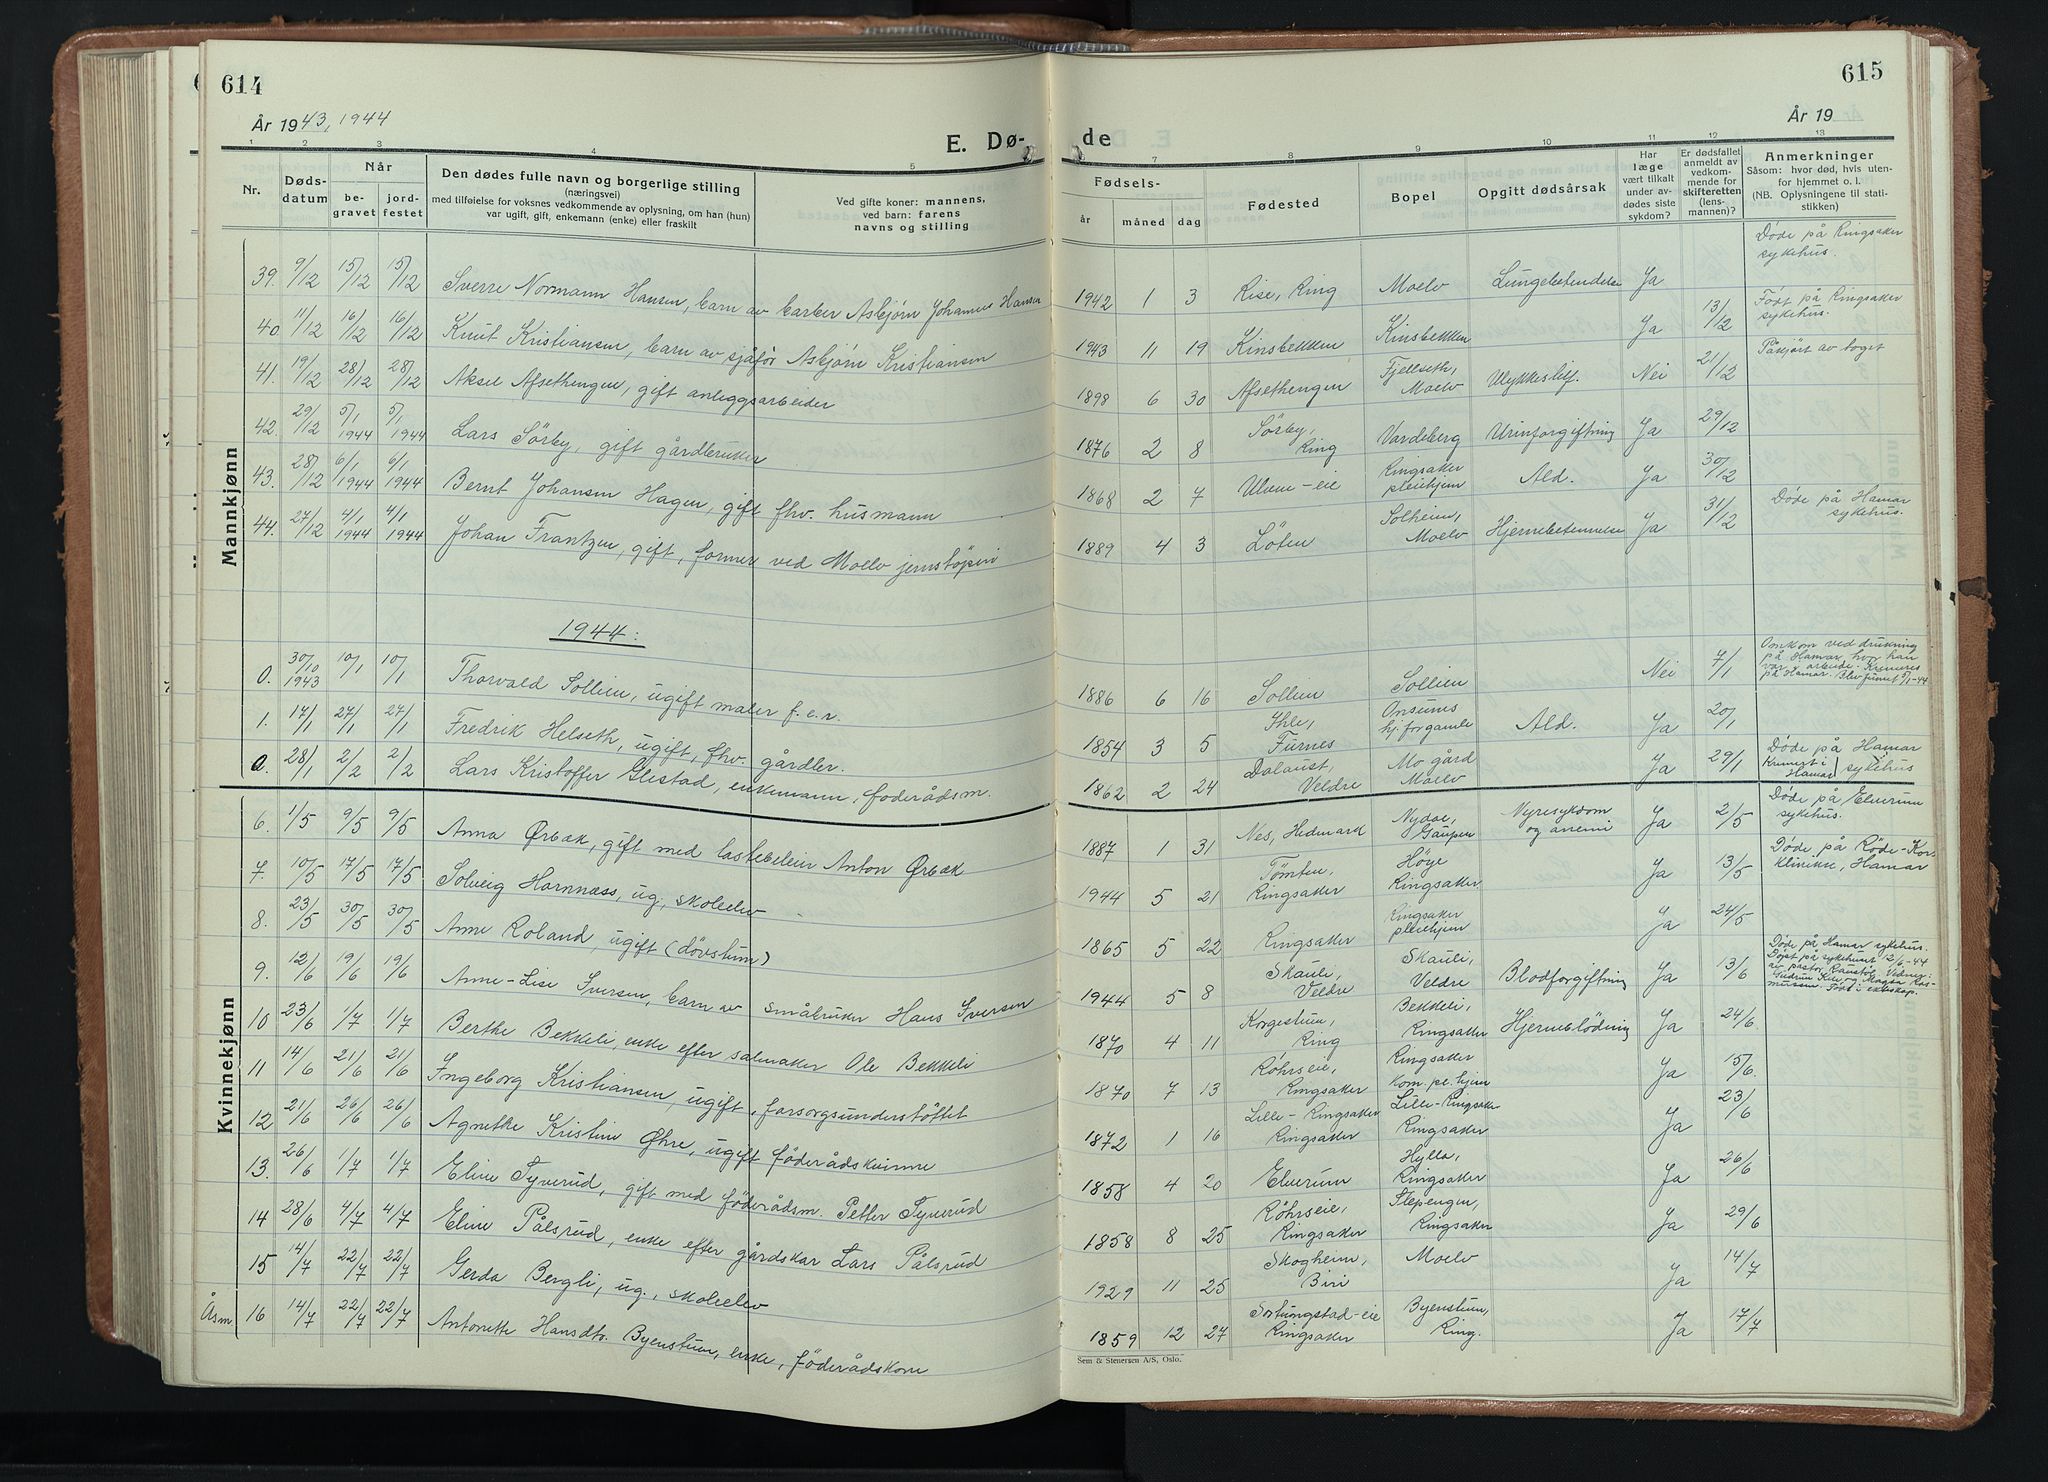 614
615
År 1943, 1944
År 19
E. Dø-
de
1 2 3 4 5
7 8 9 10 11 12 13
Nr.
Døds-
datum
Når
be-
gravet
jord-
festet
Den dødes fulle navn og borgerlige stilling
(næringsvei)
med tilføielse for voksnes vedkommende av oplysning, om han (hun)
var ugift, gift, enkemann (enke) eller fraskilt
Ved gifte koner: mannens,
ved barn: farens
navns og stilling
Fødsels-
år måned dag
Fødested
Bopel
Opgitt dødsårsak
Har
læge
vært tilkalt
under av-
dødes siste
sykdom?
Er dødsfallet
anmeldt av
vedkom-
mende for
skifteretten
(lens-
mannen)?
Anmerkninger
Såsom: hvor død, hvis uten-
for hjemmet o. l.
(NB. Oplysningene til stati-
stikken)
Mannkjønn
39. 9/12 15/12 15/12 Sverre Normann Hansen, barn av barber Asbjørn Johannes Hansen 1942 1 3 Rise, Ring Moelv Lungebetendelse Ja
Døde på Ringsaker
sykehus.
40 11/12 16/12 16/12 Knut Kristiansen, barn av sjåfør Asbjørn Kristiansen 1943 11 19 Kinsbekken Kinsbekken Ja 13/12
Født på Ringsaker
sykehus.
41. 19/12 28/12 28/12 Aksel Afsethengen, gift anleggsarbeider 1898 6 30 Afsethengen Fjellseth,
Moelv Ulykkestilf. Nei 21/12
Påkjørt av toget
42. 29/12 5/1 1944 5/1 1944 Lars Sörby, gift gårdbruker 1876 2 8 Sørby,
Ring Vardeberg Urinforgiftning Ja 29/12
43. 28/12 6/1 1944 6/1 1944 Bernt Johansen Hagen, gift fhv. husmann 1868 2 7 Ulven-eie Ringsaker
pleiehjem Ald. Ja 30/12
44. 27/12 4/1 1944 4/1 1944 Johan Frantzen, gift, former ved Moelv jernstöperi 1889 4 3 Löten Solheim,
Moelv Hjernebetennelse Ja 31/12
Døde på Hamar
sykehus.
1944:
0. 30/10 1943 10/1 10/1 Thorvald Sollien, ugift maler f.e.r. 1886 6 16 Sollien Sollien Nei 7/1
Omkom ved drukning
på Hamar, hvor han
var i arbeide. Kremeres
på Hamar. Blev funnet 5/1-44
1. 17/1 27/1 27/1 Fredrik Helseth, ugift, fhv. gårdbr. 1854 3 5 Ihle,
Furnes Onsums
hj. for gamle Ald. Ja 20/1
0. 28/1 2/2 2/2 Lars Kristoffer Glestad, enkemann, föderådsm. 1862 2 24 Dalaust,
Veldre Mo gård
Moelv Ja 29/1
Døde på Hamar
sykehus
Kremert i
Hamar
Kvinnekjønn
6. 1/5 9/5 9/5 Anna Ørbæk, gift med lastebileier Anton Ørbæk 1887 1 31 Nes, Hedmark Nydae,
Gaupen Nyresykdom
og anemi Ja 2/5
Døde på Elverum
sykehus.
7. 10/5 17/5 17/5 Solveig Hornnæss, ug., skoleelev 1944 5 21 Tömten,
Ringsaker Høye
Ringsaker Ja 13/5
Døde på Røde-Kors
klinikk, Hamar
8. 23/5 30/5 30/5 Anne Roland, ugift (dövstum) 1865 5 22 Ringsaker Ringsaker
pleiehjem Ja 24/5
9. 12/6 19/6 19/6 Anne-Lise Iversen, barn av småbruker Hans Iversen 1944 5 8 Skauli,
Veldre Skauli,
Veldre Blodforgiftning Ja 13/6
Døde på Hamar sykehus.
Døpt på sykehuset 12/6-44
av pastor Raustøl. Vedner:
Gudrun Kile og Magda Ras-
mussen. Født i ekteskap.
10 23/6 1/7 1/7 Berthe Bekkeli, enke efter salmaker Ole Bekkeli 1870 4 11 Korgestuen,
Ring Bekkeli,
Ringsaker Hjerneblödning Ja 24/6
11 14/6 21/6 21/6 Ingeborg Kristiansen, ugift, forsorgsunderstöttet 1870 7 13 Röhrseie,
Ringsaker Ringsaker
kom. pl.hjem Ja 15/6
12 21/6 26/6 26/6 Agnethe Kristine Öhre, ugift föderådskvinne 1872 1 16 Lille-Ringsaker
Ringsaker Lille-Ringsaker
Ringsaker Ja 23/6
13. 26/6 1/7 1/7 Eline Tyverud, gift med föderådsm. Petter Tyverud 1858 4 20 Elverum Hylla,
Ringsaker Ja 26/6
14 28/6 4/7 4/7 Eline Pålsrud, enke efter gårdskar Lars Pålsrud 1858 8 25 Röhrseie,
Ringsaker Stepengen,
Ringsaker Ja 29/6
15 14/7 22/7 22/7 Gerda Bergli, ug., skoleelev 1929 11 25 Skogheim,
Biri Moelv Ja 14/7
Åsm 16 14/7 22/7 22/7 Antonette Hansdtr. Byenstuen, enke, föderådskone 1859 12 27 Sortungstad-eie
Ringsaker Byenstuen,
Ring. Ja 17/7
Sem & Stenersen A/S, Oslo.